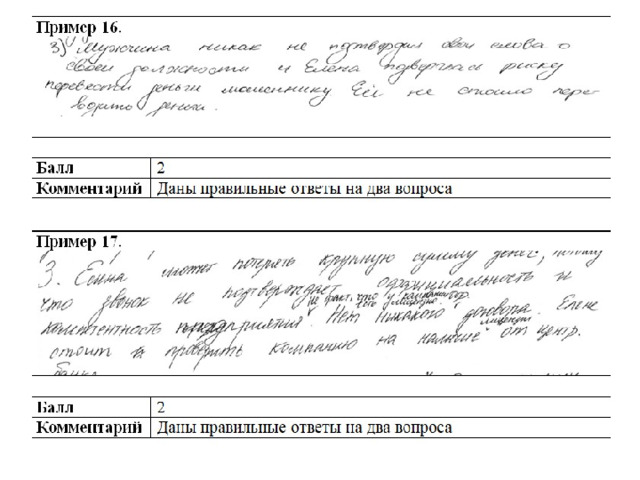 Пример 16.
3) Мужчина никак не подтвердил свои слова о
своей должности и Елена подвергнась риску
перевести деньги мошеннику Ей не стоило пере
водить деньги.
Балл 2
Комментарий Даны правильные ответы на два вопроса
Пример 17.
3. Елена может потерять крупную сумму денег, потому
что звонок не подтверждает официальность и
не факт, что у компании
есть лицензия
компетентность предприятия. Нет никакого договора. Елене
лицензии
стоит проверить компанию на наличие от центр.
банка
Балл 2
Комментарий Даны правильные ответы на два вопроса